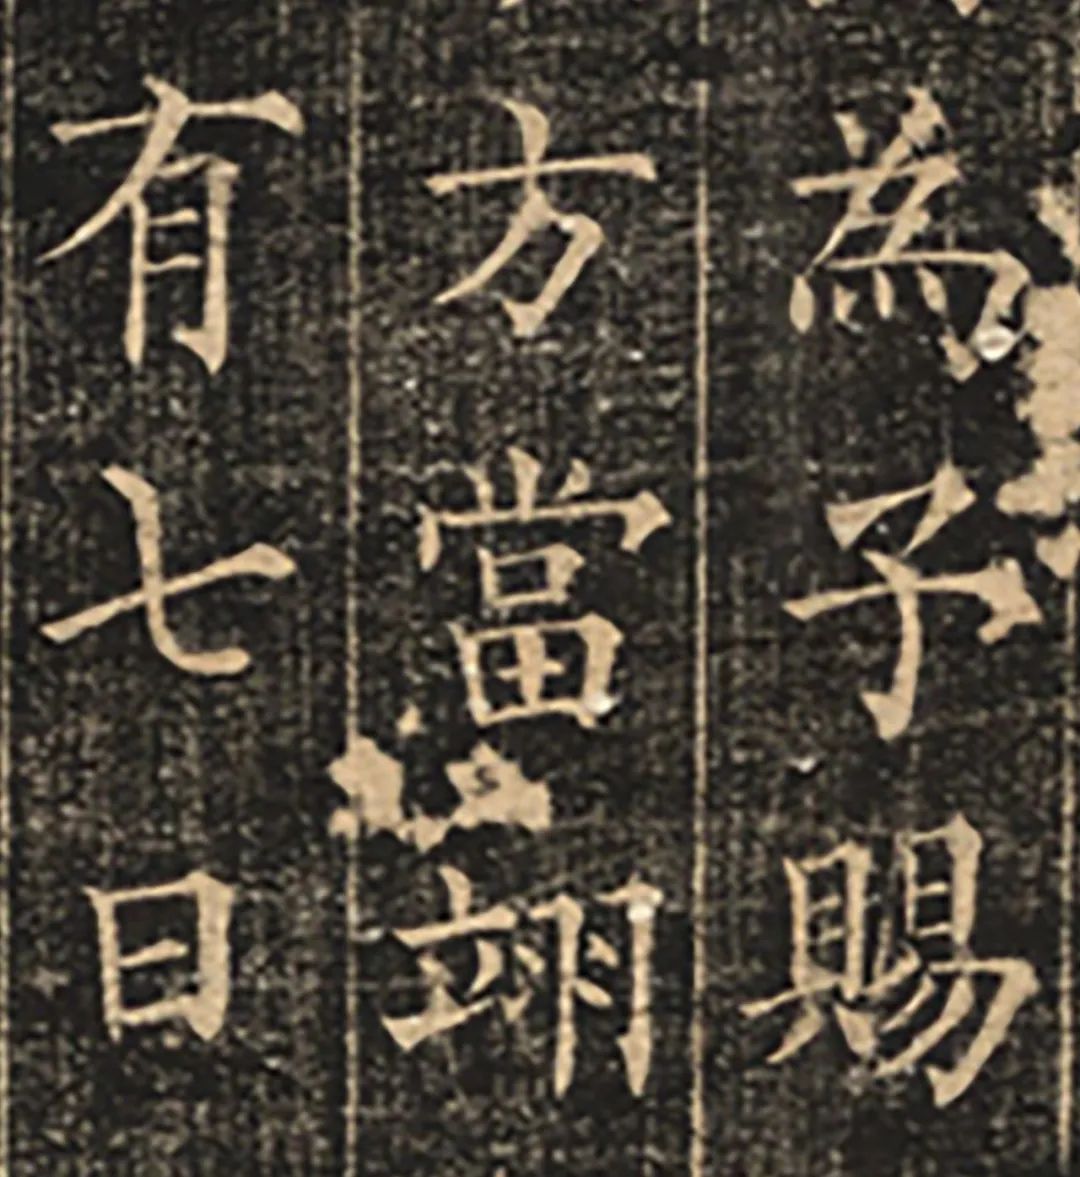 為子賜
方當翊
有七日